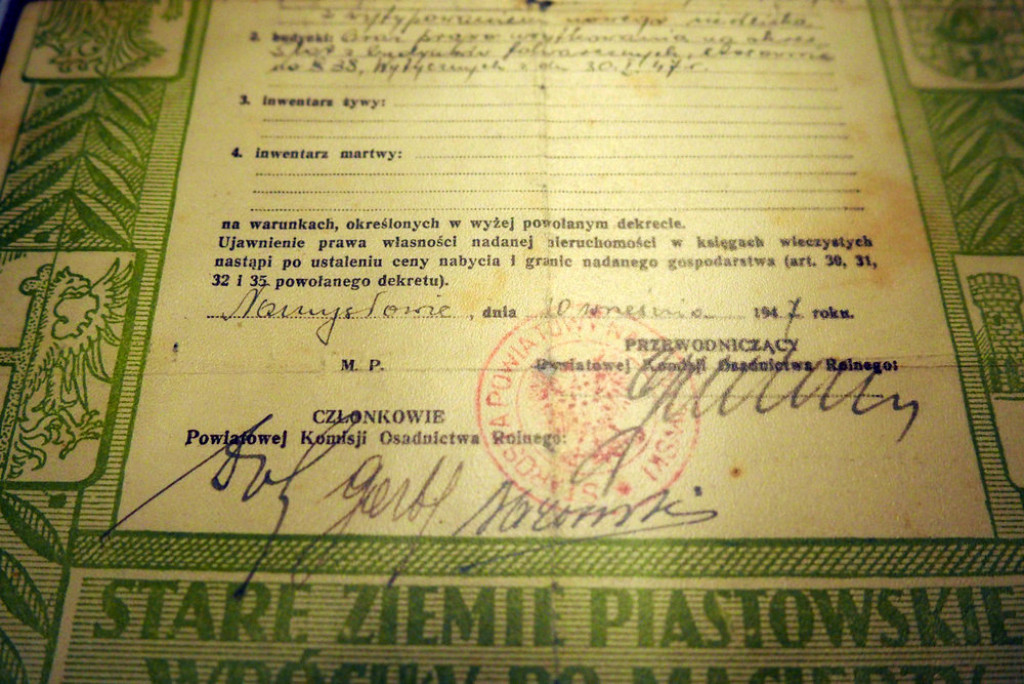 z wytypowaniem nowego siedliska
2. budynki: Oraz prawo użytkowania na okres
z budynków folwarcznych,
do § 38, Wytycznych z dn 30.I.47 r.
3. inwentarz żywy:
4. inwentarz martwy:
na warunkach, określonych w wyżej powołanym dekrecie.
Ujawnienie prawa własności nadanej nieruchomości w księgach wieczystych
nastąpi po ustaleniu ceny nabycia i granic nadanego gospodarstwa (art. 30, 31,
32 i 35 powołanego dekretu).
Namysłowie, dnia 10 września 1947 roku.
PRZEWODNICZĄCY
M. P. Powiatowej Komisji Osadnictwa Rolnego:
CZŁONKOWIE
Powiatowej Komisji Osadnictwa Rolnego:
STARE ZIEMIE PIASTOWSKIE
WRÓCIŁY DO MACIERZY